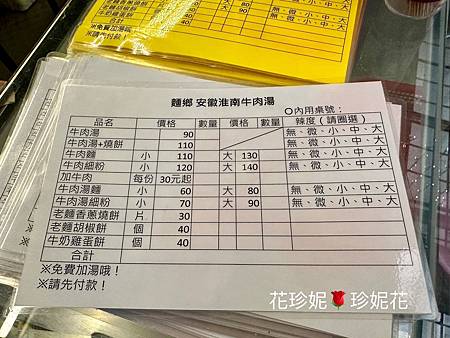 80
無、微、小、中、大
90
無、微、小、中、大
30
40
40
牛奶雞蛋餅
個
※免費加湯哦！
※請先付款！
麵鄉 安徽淮南牛肉湯
〇內用桌號：
品名 價格 數量 價格 數量 辣度（請圈選）
牛肉湯 90 無、微、小、中、大
牛肉湯+燒餅 110 無、微、小、中、大
牛肉麵 小 110 大 130 無、微、小、中、大
牛肉細粉 小 120 大 140 無、微、小、中、大
加牛肉 每份 30元起
牛肉湯麵 小 60 大 80 無、微、小、中、大
牛肉湯細粉 小 70 大 90 無、微、小、中、大
老麵香蔥燒餅 片 30
老麵胡椒餅 個 40
牛奶雞蛋餅 個 40
合計
※免費加湯哦！
※請先付款！
花珍妮🌹珍妮花